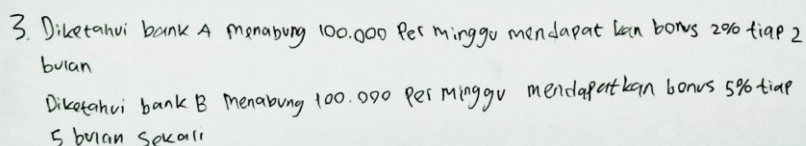 3. Diketahui bank A menabung 100.000 Per minggu mendapat kan bonus 2% tiap 2
bulan
Diketahui bank B menabung 100.000 Per minggu mendapatkan bonus 5% tiap
5 bulan sekali